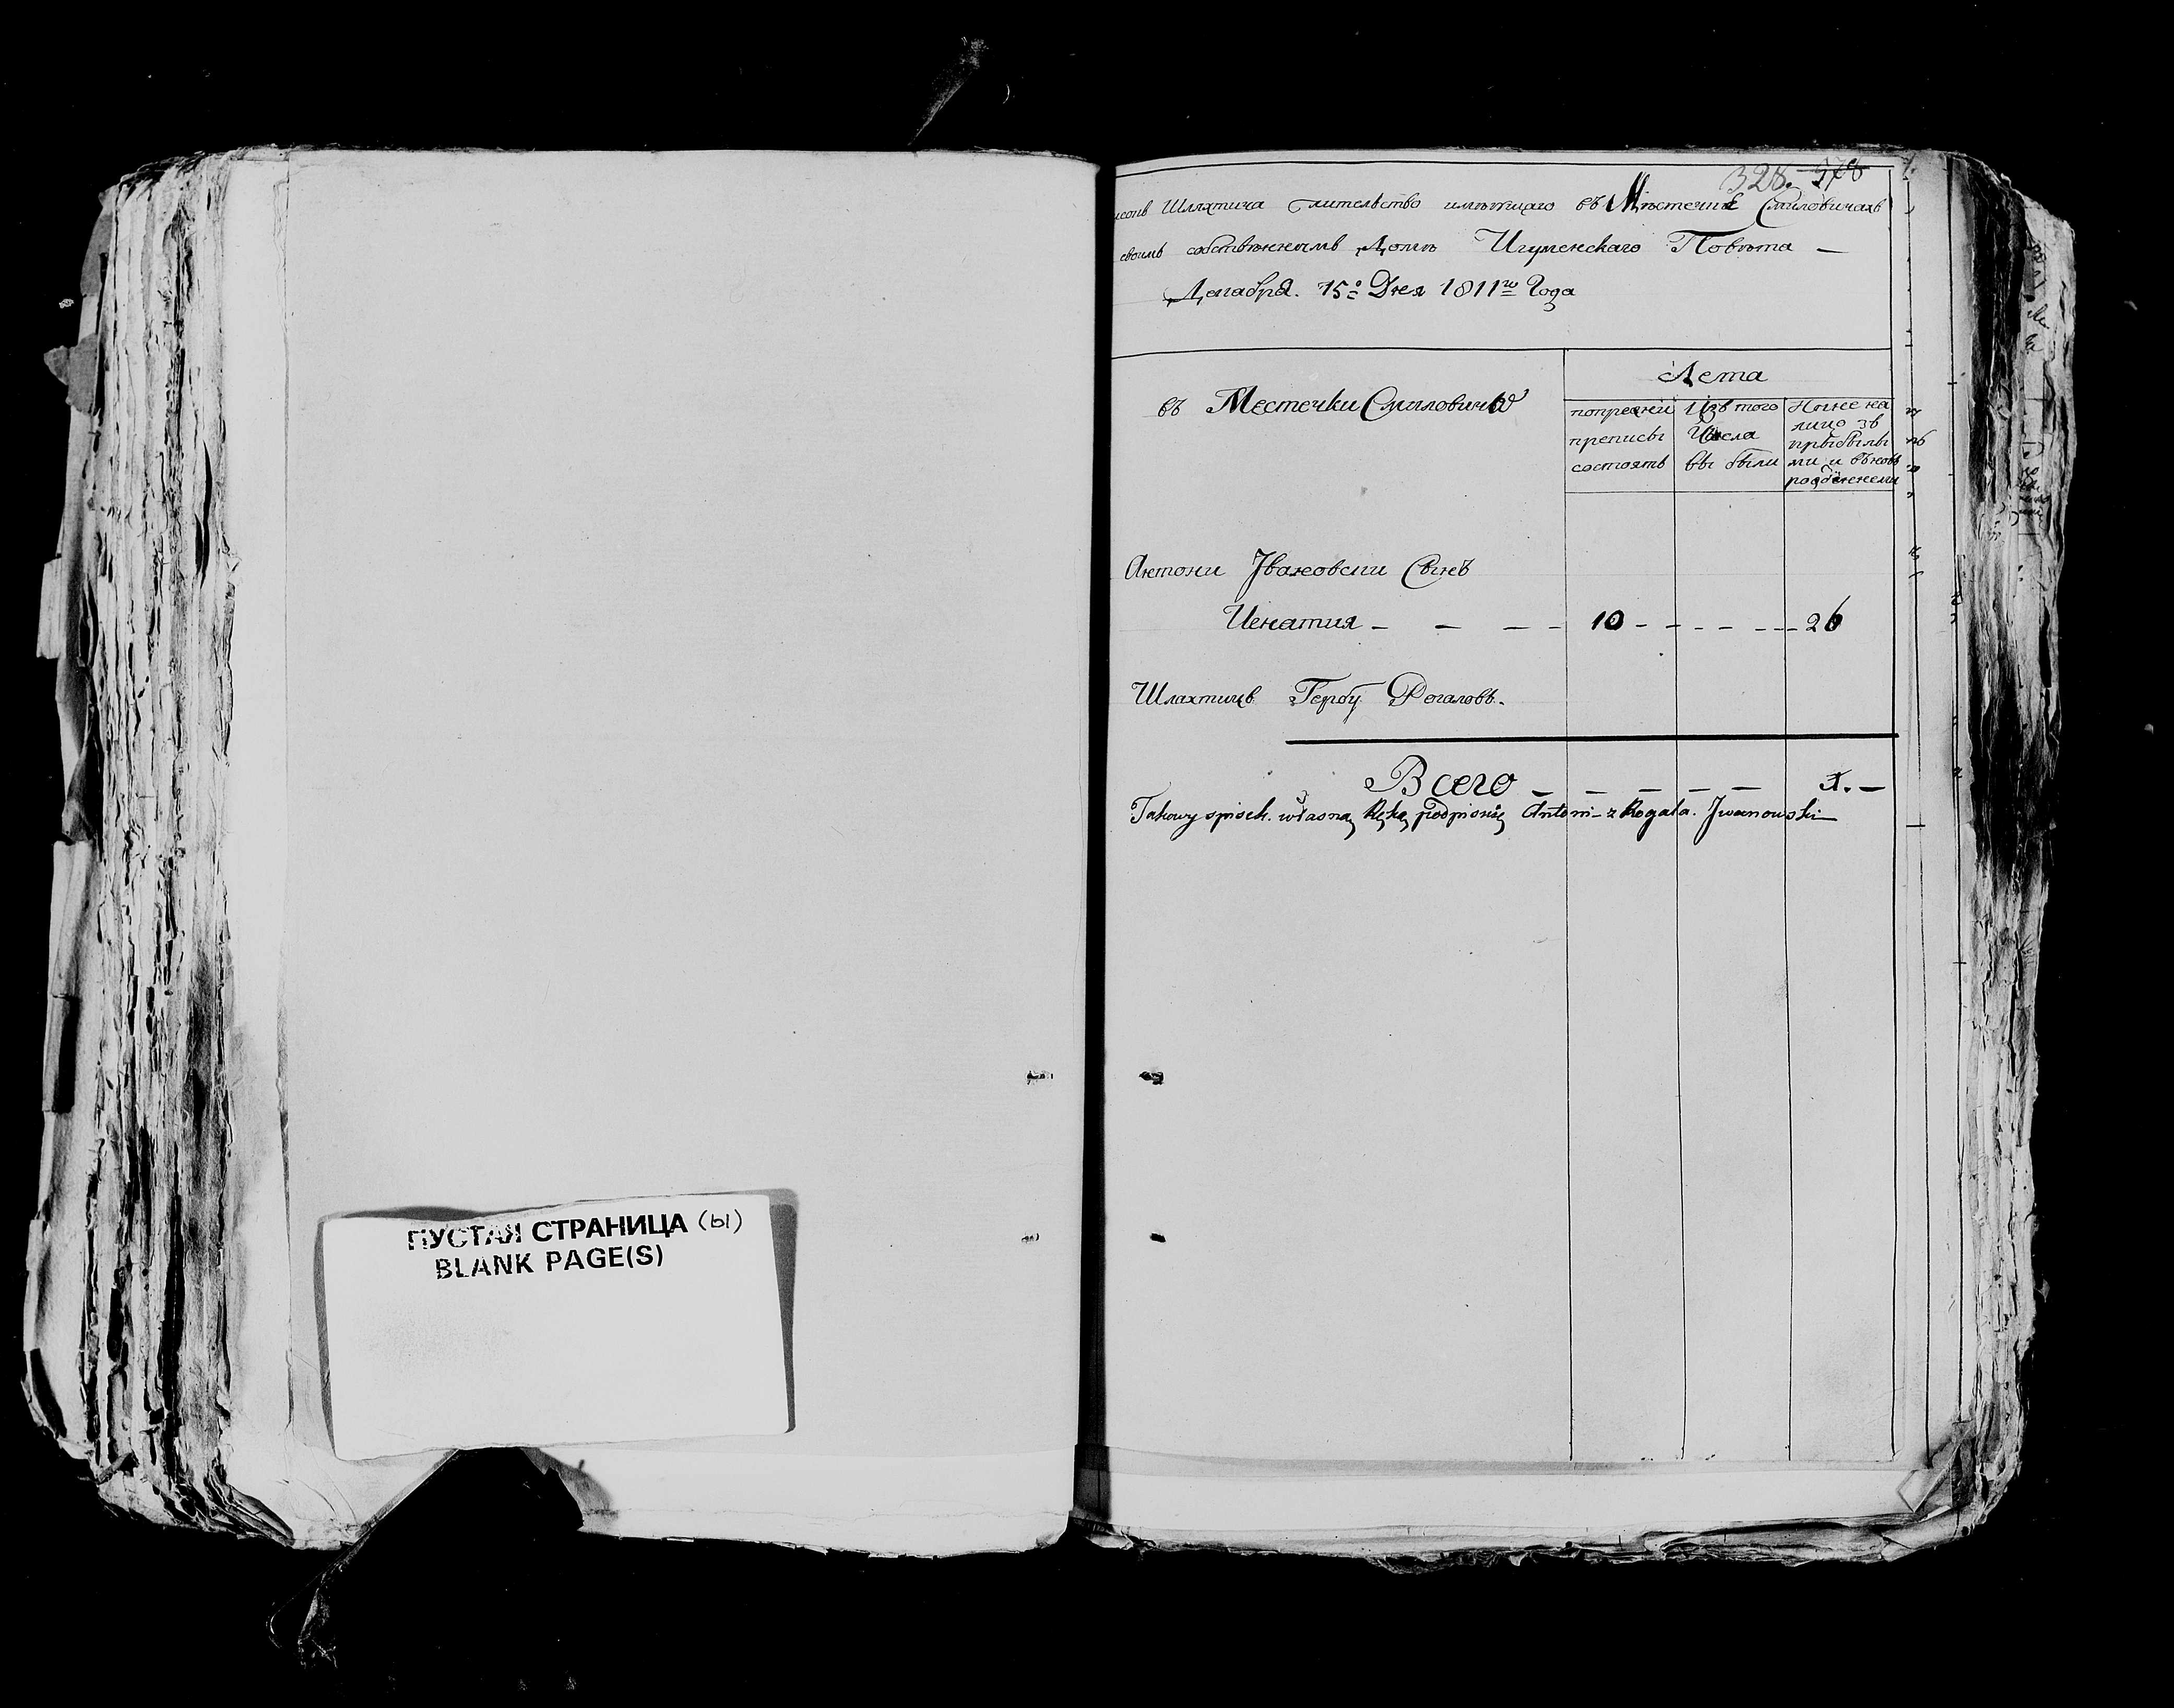 ПУСТАЯ СТРАНИЦА (ы)
BLANK PAGE(S)
328. 378
Шляхтича Жительство имѣющаго въ Мѣстечкѣ Смиловичахъ
своимъ собственнымъ Домѣ Игуменскаго Повѣта —
Декабря. 15º Дня 1811го Года
въ Местечки Смиловичъ
Лета
попрежни преписы состоятъ
Изъ того Числа выбыли
Ныне на лицо зъ прыбылыми и въновь рожденеми
Антони Јвановски Сынъ
Игнатия — — — — 10 - - - - - --- 26
Шляхтичъ Гербу Рогаловъ.
Всего — — — — — 1. —
Takowy spisek. własną Ręką podpisuię Antoni z Rogala. Jwanowski